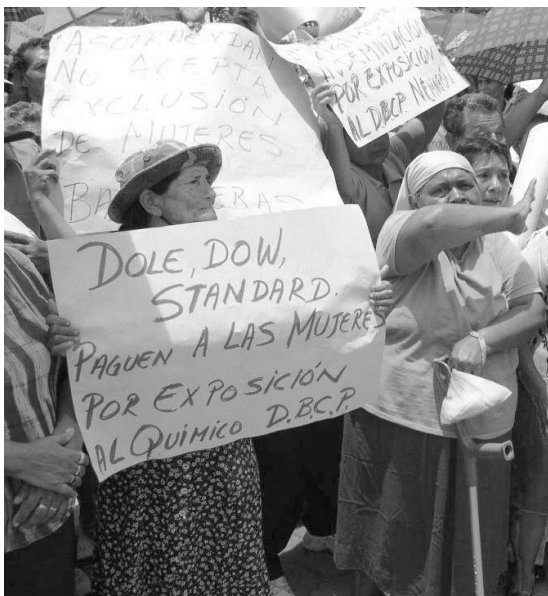 NO ACEPTA
EXCLUSIÓN
DE MUJERES
INDEMNIZACIÓN
POR EXPOSICIÓN
AL DBCP
DOLE, DOW,
STANDARD.
PAGUEN A LAS MUJERES
POR EXPOSICIÓN
AL QUÍMICO D.B.C.P.